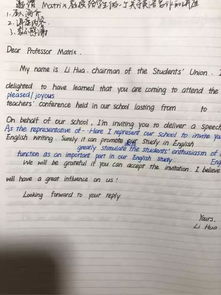 邀请 Matrix 教授给学生做-个关于英语写作的讲座
1.
2.
3.
Dear Professor Matrix.
My name is Li Hua, chairman of the Students' Union. I
delighted to have learned that you are coming to attend the
pleased / joyous
teachers' conference held in our school lasting from to
On behalf of our school, I'm inviting you to deliver a speech
As the representative of Here I represent our school to invite you
English writing. Surely it can promote study in English
greatly stimulate the students' enthusiasm of
function as an important part in our English study.
We will be grateful if you can accept the invitation. I believe
will have a great influence on us!
Looking forward to your reply.
Yours,
Li Hua